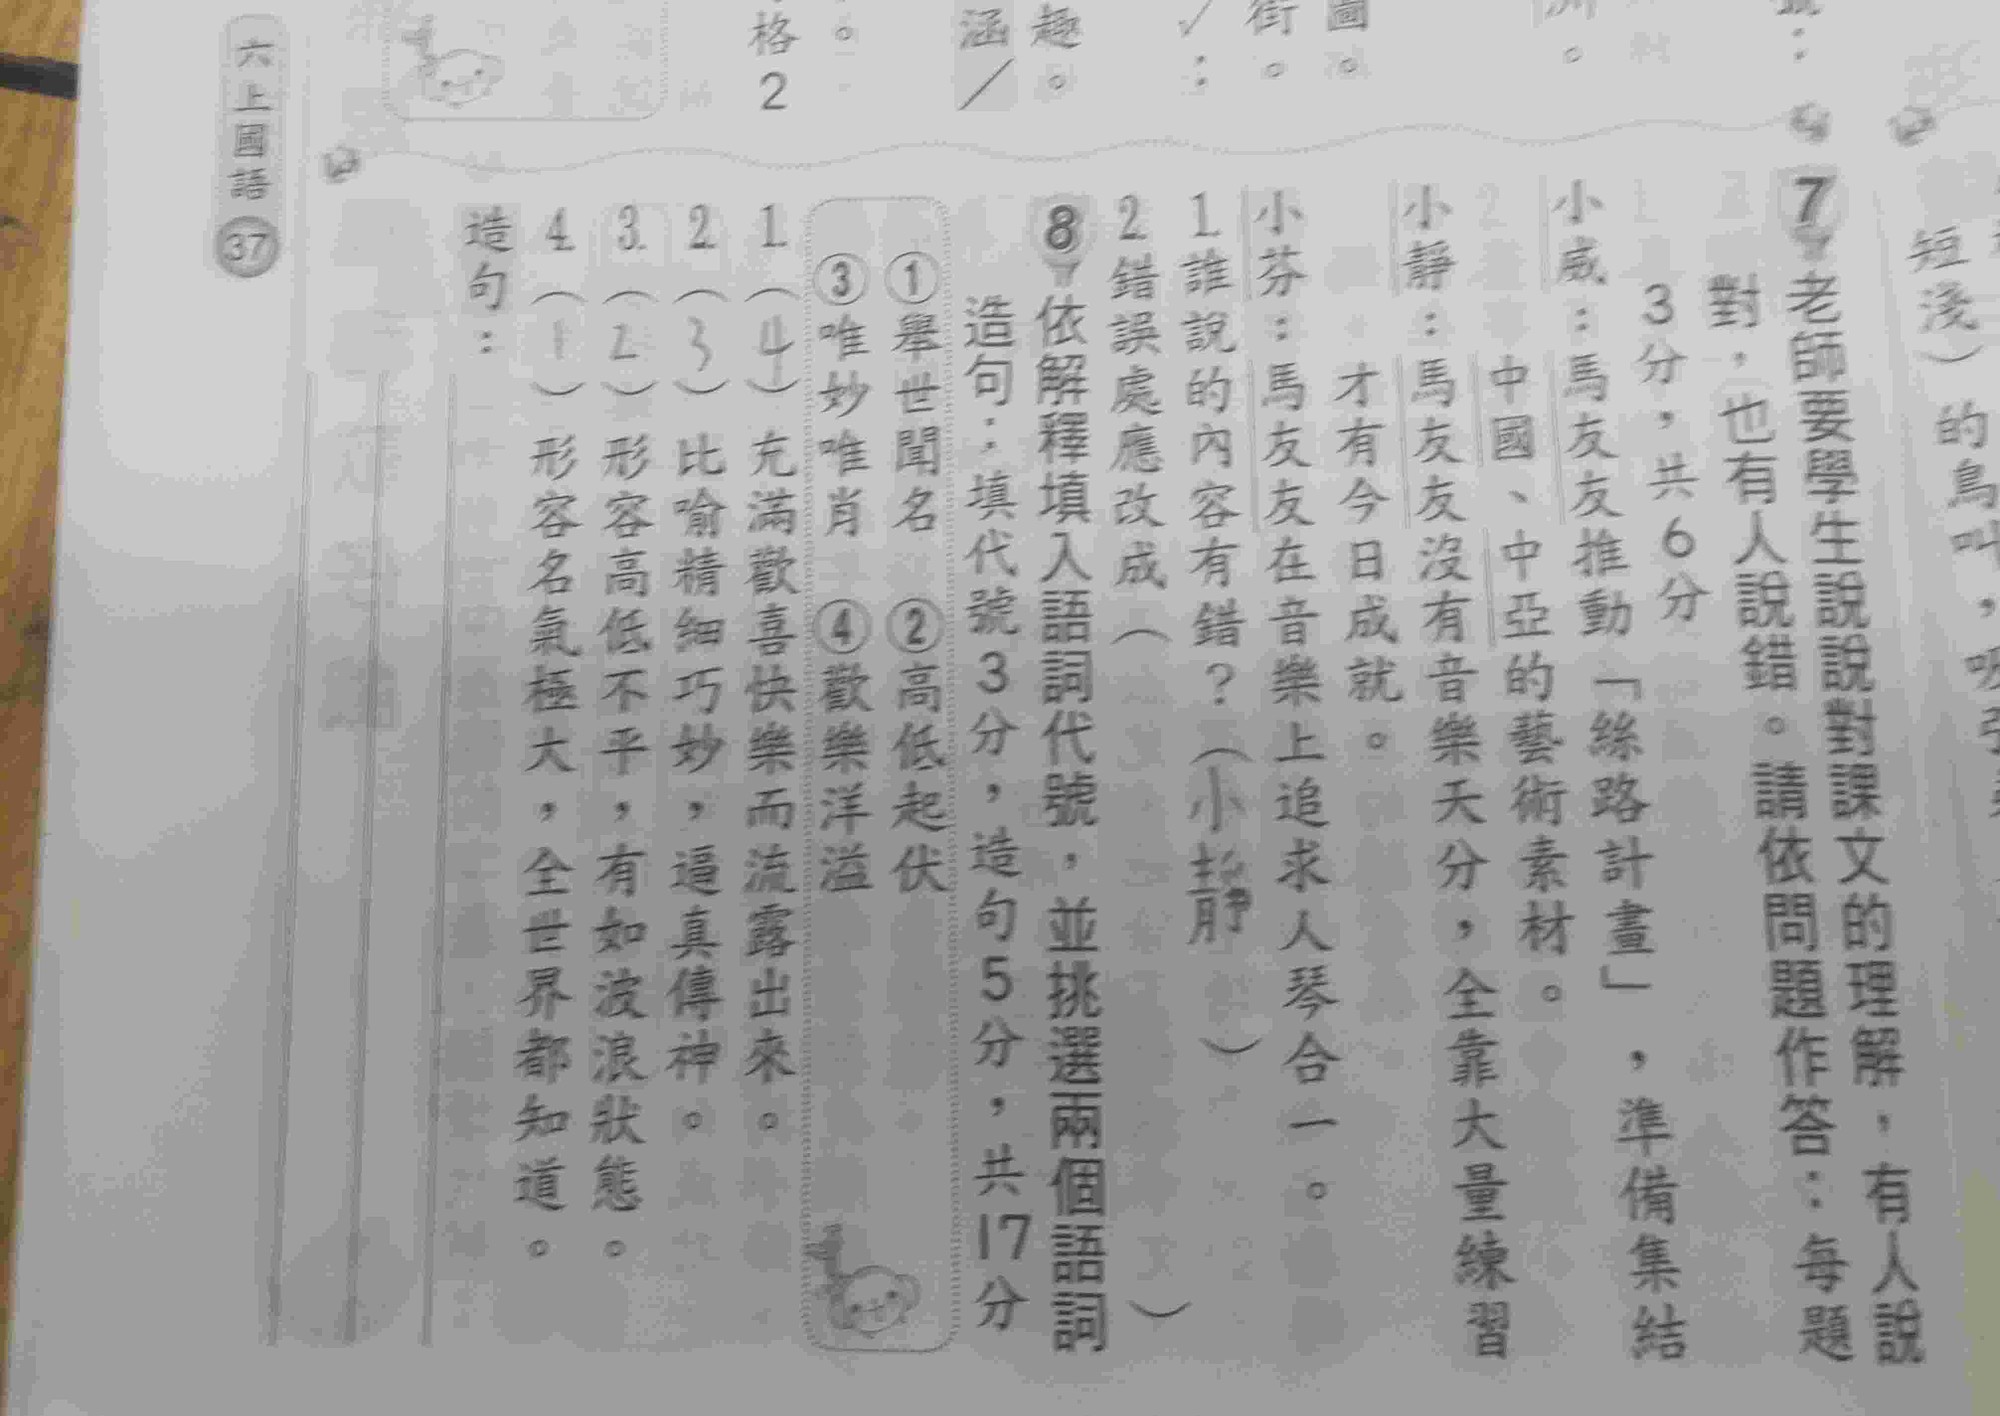 短淺）的鳥叫，
7 老師要學生說說對課文的理解，有人說
對，也有人說錯。請依問題作答：每題
3分，共6分
小威：馬友友推動「絲路計畫」，準備集結
中國、中亞的藝術素材。
小靜：馬友友沒有音樂天分，全靠大量練習
才有今日成就。
小芬：馬友友在音樂上追求人琴合一。
1.誰說的內容有錯？（小靜）
2.錯誤處應改成（ ）
8 依解釋填入語詞代號，並挑選兩個語詞
造句：填代號3分，造句5分，共17分
①舉世聞名 ②高低起伏
③唯妙唯肖 ④歡樂洋溢
1.（4）充滿歡喜快樂而流露出來。
2.（3）比喻精細巧妙，逼真傳神。
3.（2）形容高低不平，有如波浪狀態。
4.（1）形容名氣極大，全世界都知道。
造句：
圖。
街。
✓：
趣。
涵／
。
格2
六上國語 37